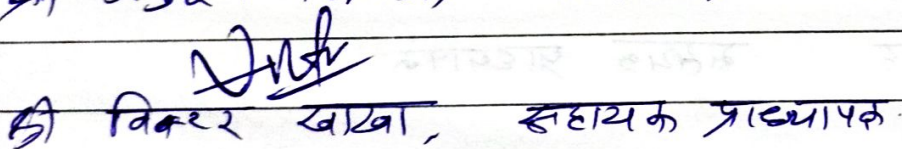 श्री विक्टर खाखा, सहायक प्राध्यापक